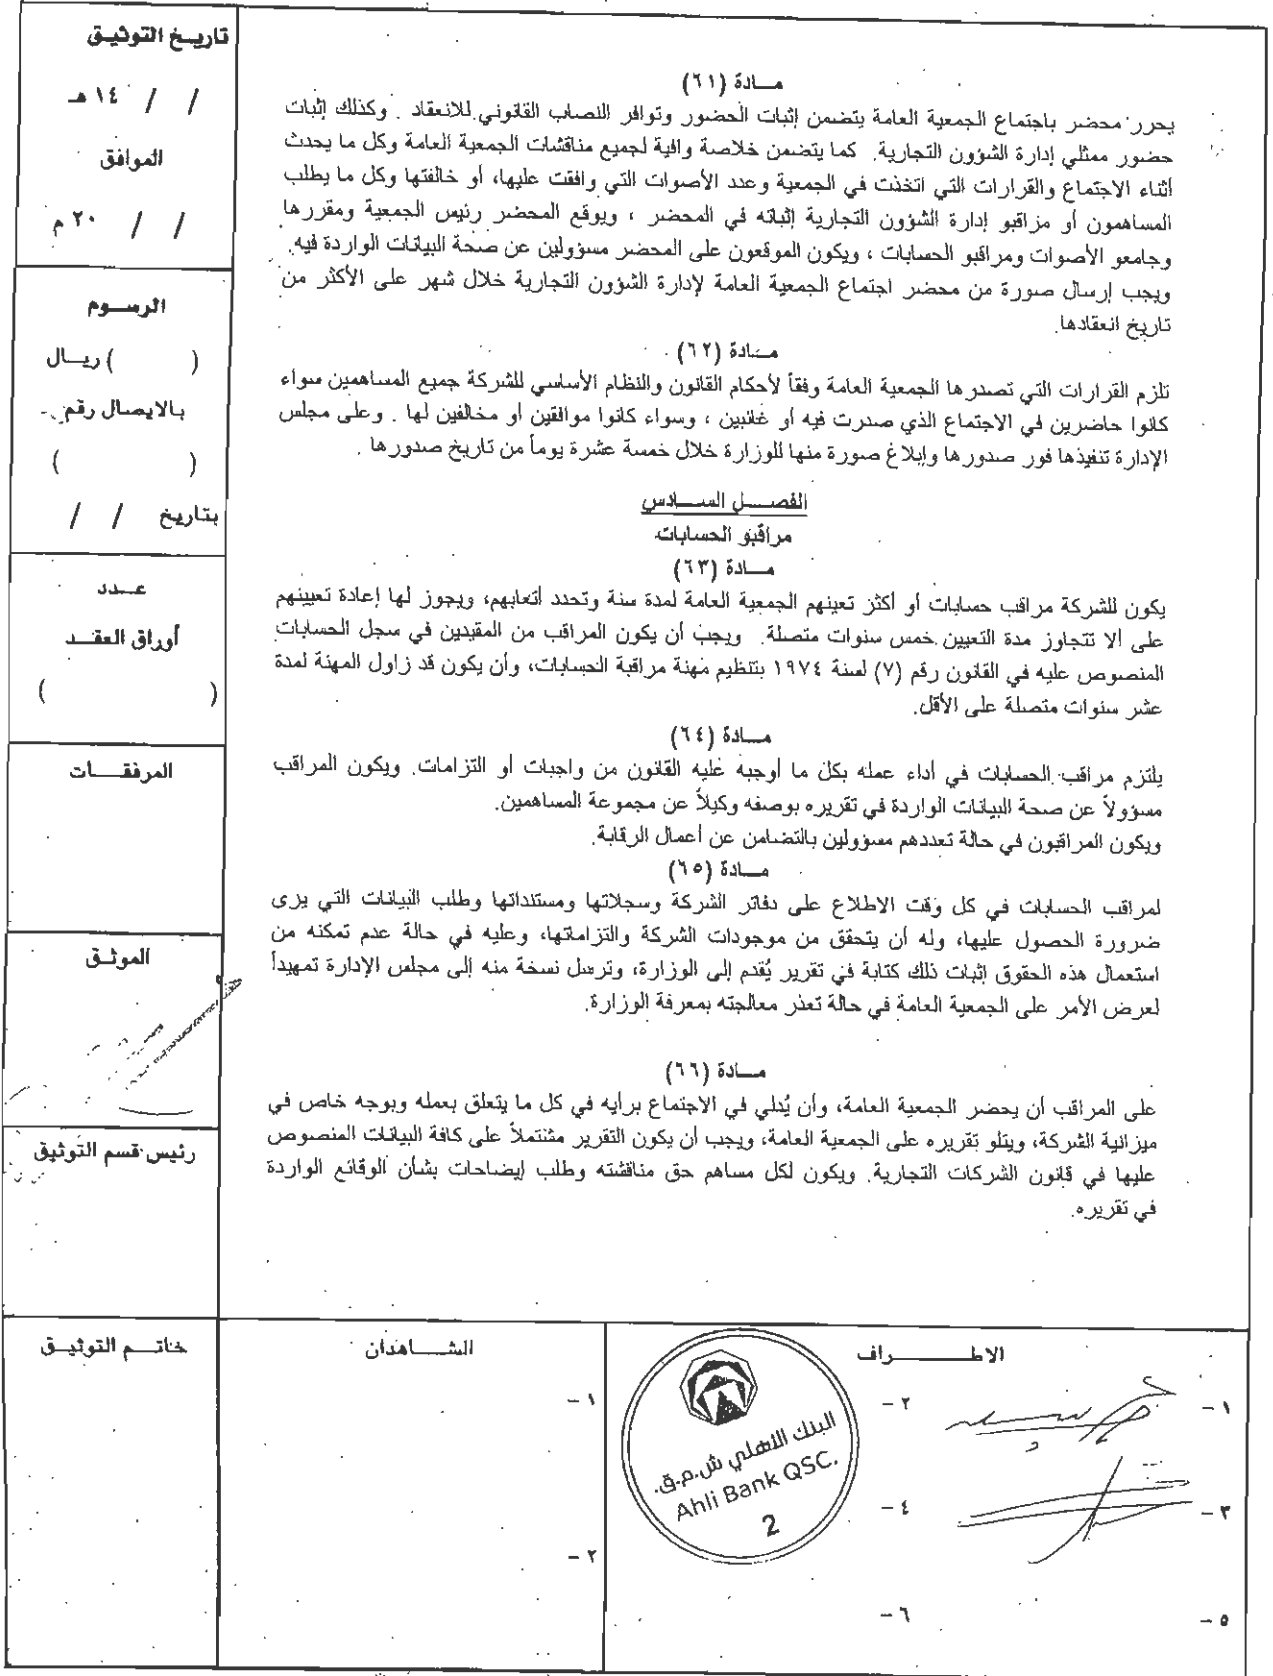 تاريخ التوثيق
/ / ١٤ هـ
الموافق
/ / ٢٠ م
الرسوم
( ) ريال
بالايصال رقم
( )
بتاريخ / /
عدد
أوراق العقد
( )
المرفقات
الموثق
رئيس قسم التوثيق
خاتم التوثيق
مادة (٦١)
يحرر محضر باجتماع الجمعية العامة يتضمن إثبات الحضور وتوافر النصاب القانوني للانعقاد . وكذلك إثبات
حضور ممثلي إدارة الشؤون التجارية. كما يتضمن خلاصة وافية لجميع مناقشات الجمعية العامة وكل ما يحدث
أثناء الاجتماع والقرارات التي اتخذت في الجمعية وعدد الأصوات التي وافقت عليها، أو خالفتها وكل ما يطلب
المساهمون أو مراقبو إدارة الشؤون التجارية إثباته في المحضر ، ويوقع المحضر رئيس الجمعية ومقررها
وجامعو الأصوات ومراقبو الحسابات ، ويكون الموقعون على المحضر مسؤولين عن صحة البيانات الواردة فيه.
ويجب إرسال صورة من محضر اجتماع الجمعية العامة لإدارة الشؤون التجارية خلال شهر على الأكثر من
تاريخ انعقادها.
مادة (٦٢)
تلزم القرارات التي تصدرها الجمعية العامة وفقاً لأحكام القانون والنظام الأساسي للشركة جميع المساهمين سواء
كانوا حاضرين في الاجتماع الذي صدرت فيه أو غائبين ، وسواء كانوا موافقين أو مخالفين لها . وعلى مجلس
الإدارة تنفيذها فور صدورها وإبلاغ صورة منها للوزارة خلال خمسة عشرة يوماً من تاريخ صدورها .
الفصل السادس
مراقبو الحسابات
مادة (٦٣)
يكون للشركة مراقب حسابات أو أكثر تعينهم الجمعية العامة لمدة سنة وتحدد أتعابهم، ويجوز لها إعادة تعيينهم
على ألا تتجاوز مدة التعيين خمس سنوات متصلة. ويجب أن يكون المراقب من المقيدين في سجل الحسابات
المنصوص عليه في القانون رقم (٧) لسنة ١٩٧٤ بتنظيم مهنة مراقبة الحسابات، وأن يكون قد زاول المهنة لمدة
عشر سنوات متصلة على الأقل.
مادة (٦٤)
يلتزم مراقب الحسابات في أداء عمله بكل ما أوجبه عليه القانون من واجبات أو التزامات. ويكون المراقب
مسؤولاً عن صحة البيانات الواردة في تقريره بوصفه وكيلاً عن مجموعة المساهمين.
ويكون المراقبون في حالة تعددهم مسؤولين بالتضامن عن أعمال الرقابة.
مادة (٦٥)
لمراقب الحسابات في كل وقت الاطلاع على دفاتر الشركة وسجلاتها ومستنداتها وطلب البيانات التي يرى
ضرورة الحصول عليها، وله أن يتحقق من موجودات الشركة والتزاماتها، وعليه في حالة عدم تمكنه من
استعمال هذه الحقوق إثبات ذلك كتابة في تقرير يُقدم إلى الوزارة، وترسل نسخة منه إلى مجلس الإدارة تمهيداً
لعرض الأمر على الجمعية العامة في حالة تعذر معالجته بمعرفة الوزارة.
مادة (٦٦)
على المراقب أن يحضر الجمعية العامة، وأن يُدلي في الاجتماع برأيه في كل ما يتعلق بعمله وبوجه خاص في
ميزانية الشركة، ويتلو تقريره على الجمعية العامة، ويجب أن يكون التقرير مشتملاً على كافة البيانات المنصوص
عليها في قانون الشركات التجارية. ويكون لكل مساهم حق مناقشته وطلب إيضاحات بشأن الوقائع الواردة
في تقريره.
الاطراف
١ -
٢ -
٣ -
٤ -
٥ -
٦ -
البنك الاهلي ش.م.ق.
Ahli Bank QSC.
2
الشاهدان
١ -
٢ -